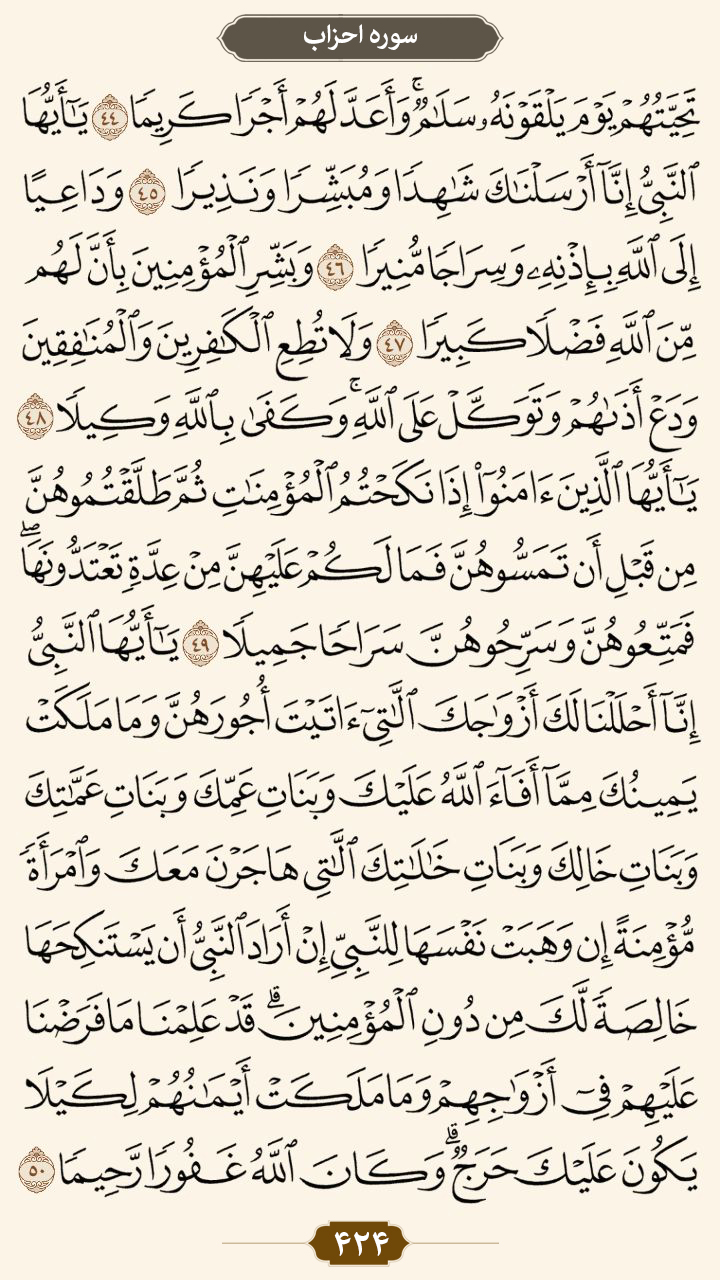 سوره احزاب
تَحِيَّتُهُمْ يَوْمَ يَلْقَوْنَهُۥ سَلَٰمٌ ۚ وَأَعَدَّ لَهُمْ أَجْرًا كَرِيمًا ٤٤ يَٰٓأَيُّهَا
ٱلنَّبِىُّ إِنَّآ أَرْسَلْنَٰكَ شَٰهِدًا وَمُبَشِّرًا وَنَذِيرًا ٤٥ وَدَاعِيًا
إِلَى ٱللَّهِ بِإِذْنِهِۦ وَسِرَاجًا مُّنِيرًا ٤٦ وَبَشِّرِ ٱلْمُؤْمِنِينَ بِأَنَّ لَهُم
مِّنَ ٱللَّهِ فَضْلًا كَبِيرًا ٤٧ وَلَا تُطِعِ ٱلْكَٰفِرِينَ وَٱلْمُنَٰفِقِينَ
وَدَعْ أَذَىٰهُمْ وَتَوَكَّلْ عَلَى ٱللَّهِ ۚ وَكَفَىٰ بِٱللَّهِ وَكِيلًا ٤٨
يَٰٓأَيُّهَا ٱلَّذِينَ ءَامَنُوٓا۟ إِذَا نَكَحْتُمُ ٱلْمُؤْمِنَٰتِ ثُمَّ طَلَّقْتُمُوهُنَّ
مِن قَبْلِ أَن تَمَسُّوهُنَّ فَمَا لَكُمْ عَلَيْهِنَّ مِنْ عِدَّةٍ تَعْتَدُّونَهَا ۖ
فَمَتِّعُوهُنَّ وَسَرِّحُوهُنَّ سَرَاحًا جَمِيلًا ٤٩ يَٰٓأَيُّهَا ٱلنَّبِىُّ
إِنَّآ أَحْلَلْنَا لَكَ أَزْوَٰجَكَ ٱلَّٰتِىٓ ءَاتَيْتَ أُجُورَهُنَّ وَمَا مَلَكَتْ
يَمِينُكَ مِمَّآ أَفَآءَ ٱللَّهُ عَلَيْكَ وَبَنَاتِ عَمِّكَ وَبَنَاتِ عَمَّٰتِكَ
وَبَنَاتِ خَالِكَ وَبَنَاتِ خَٰلَٰتِكَ ٱلَّٰتِى هَاجَرْنَ مَعَكَ وَٱمْرَأَةً
مُّؤْمِنَةً إِن وَهَبَتْ نَفْسَهَا لِلنَّبِىِّ إِنْ أَرَادَ ٱلنَّبِىُّ أَن يَسْتَنكِحَهَا
خَالِصَةً لَّكَ مِن دُونِ ٱلْمُؤْمِنِينَ ۗ قَدْ عَلِمْنَا مَا فَرَضْنَا
عَلَيْهِمْ فِىٓ أَزْوَٰجِهِمْ وَمَا مَلَكَتْ أَيْمَٰنُهُمْ لِكَيْلَا
يَكُونَ عَلَيْكَ حَرَجٌ ۗ وَكَانَ ٱللَّهُ غَفُورًا رَّحِيمًا ٥٠
۴۲۴